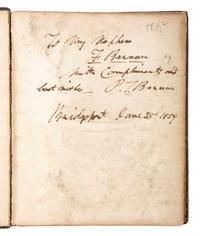 To My Nephew
F Barnum
with Compliments and
best wishes P. T. Barnum
Bridgeport June 28th 1859